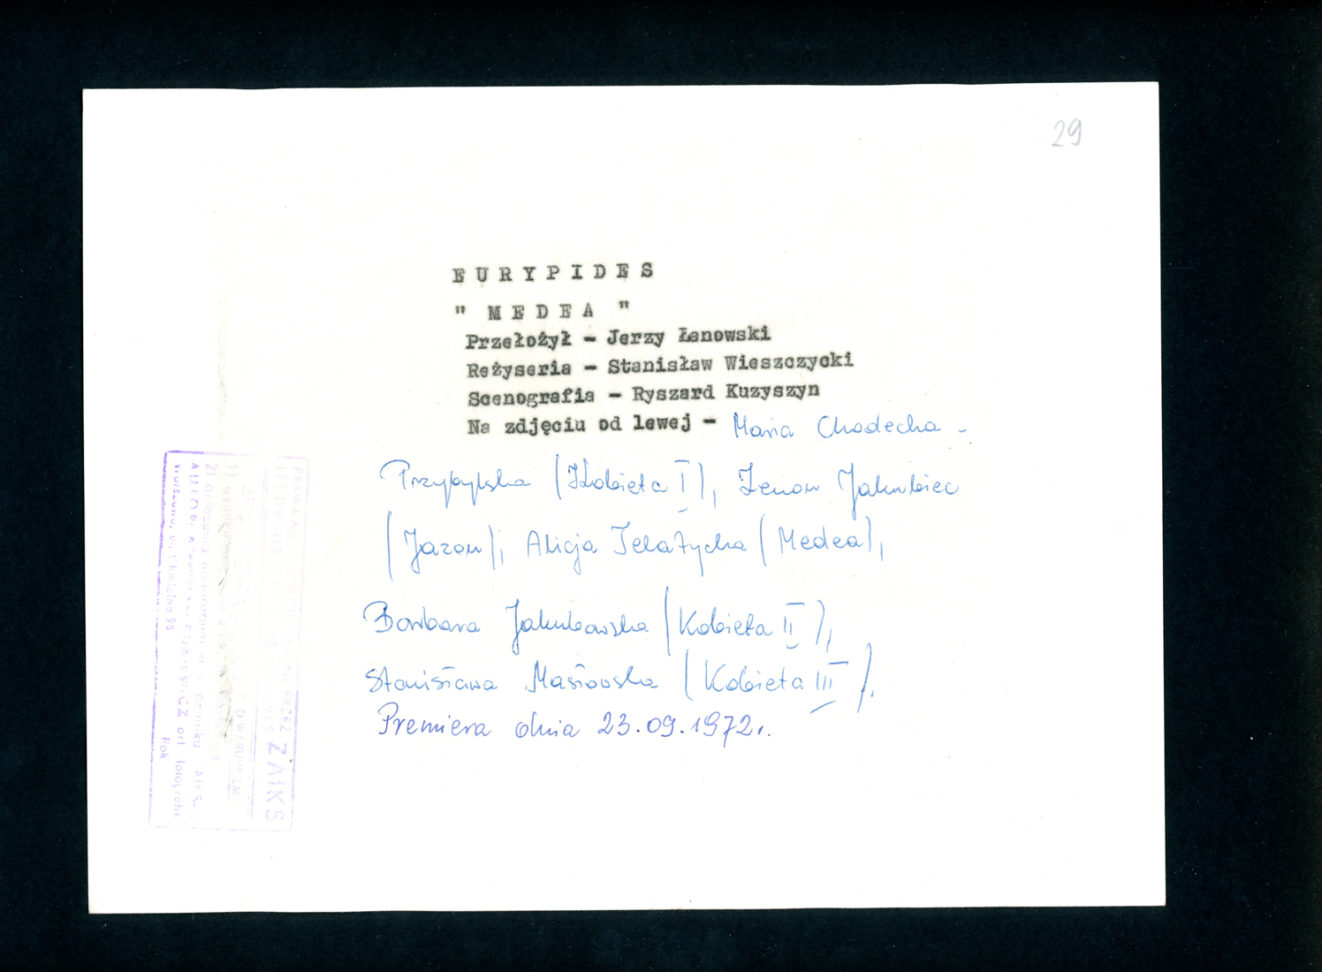 29
EURYPIDES
" MEDEA "
Przełożył - Jerzy Łanowski
Reżyseria - Stanisław Wieszczycki
Scenografia - Ryszard Kuzyszyn
Na zdjęciu od lewej - Maria Chodecka -
Przybylska (Kobieta I), Zenon Jakubiec
(Jazon), Alicja Telatycka (Medea),
Barbara Jakubowska (Kobieta II),
Stanisława Masłowska (Kobieta III).
Premiera dnia 23.09.1972r.
PRZEZ ZAiKS
art. fotografik
Rok